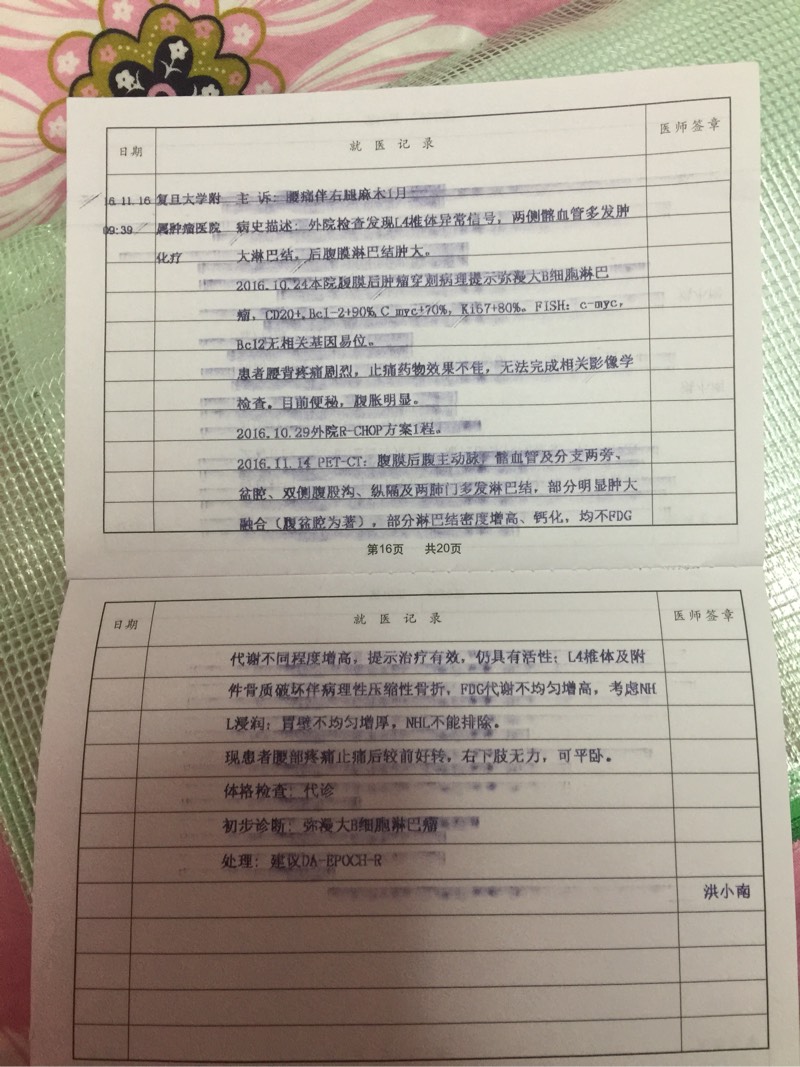 日期 就医记录 医师签章
16.11.16 复旦大学附 主 诉: 腰痛伴右腿麻木1月
09:39 属肿瘤医院 病史描述: 外院检查发现L4椎体异常信号, 两侧髂血管多发肿
化疗 大淋巴结, 后腹膜淋巴结肿大。
2016.10.24本院腹膜后肿瘤穿刺病理提示弥漫大B细胞淋巴
瘤, CD20+, Bcl-2+90%, C myc+70%, Ki67+80%。FISH: c-myc,
Bcl2无相关基因易位。
患者腰背疼痛剧烈, 止痛药物效果不佳, 无法完成相关影像学
检查。目前便秘, 腹胀明显。
2016.10.29外院R-CHOP方案1程。
2016.11.14 PET-CT: 腹膜后腹主动脉, 髂血管及分支两旁、
盆腔、双侧腹股沟、纵隔及两肺门多发淋巴结, 部分明显肿大
融合(腹盆腔为著), 部分淋巴结密度增高、钙化, 均不FDG
第16页 共20页
日期 就医记录 医师签章
代谢不同程度增高, 提示治疗有效, 仍具有活性; L4椎体及附
件骨质破坏伴病理性压缩性骨折, FDG代谢不均匀增高, 考虑NH
L浸润; 胃壁不均匀增厚, NHL不能排除。
现患者腰部疼痛止痛后较前好转, 右下肢无力, 可平卧。
体格检查: 代诊
初步诊断: 弥漫大B细胞淋巴瘤
处理: 建议DA-EPOCH-R
洪小南